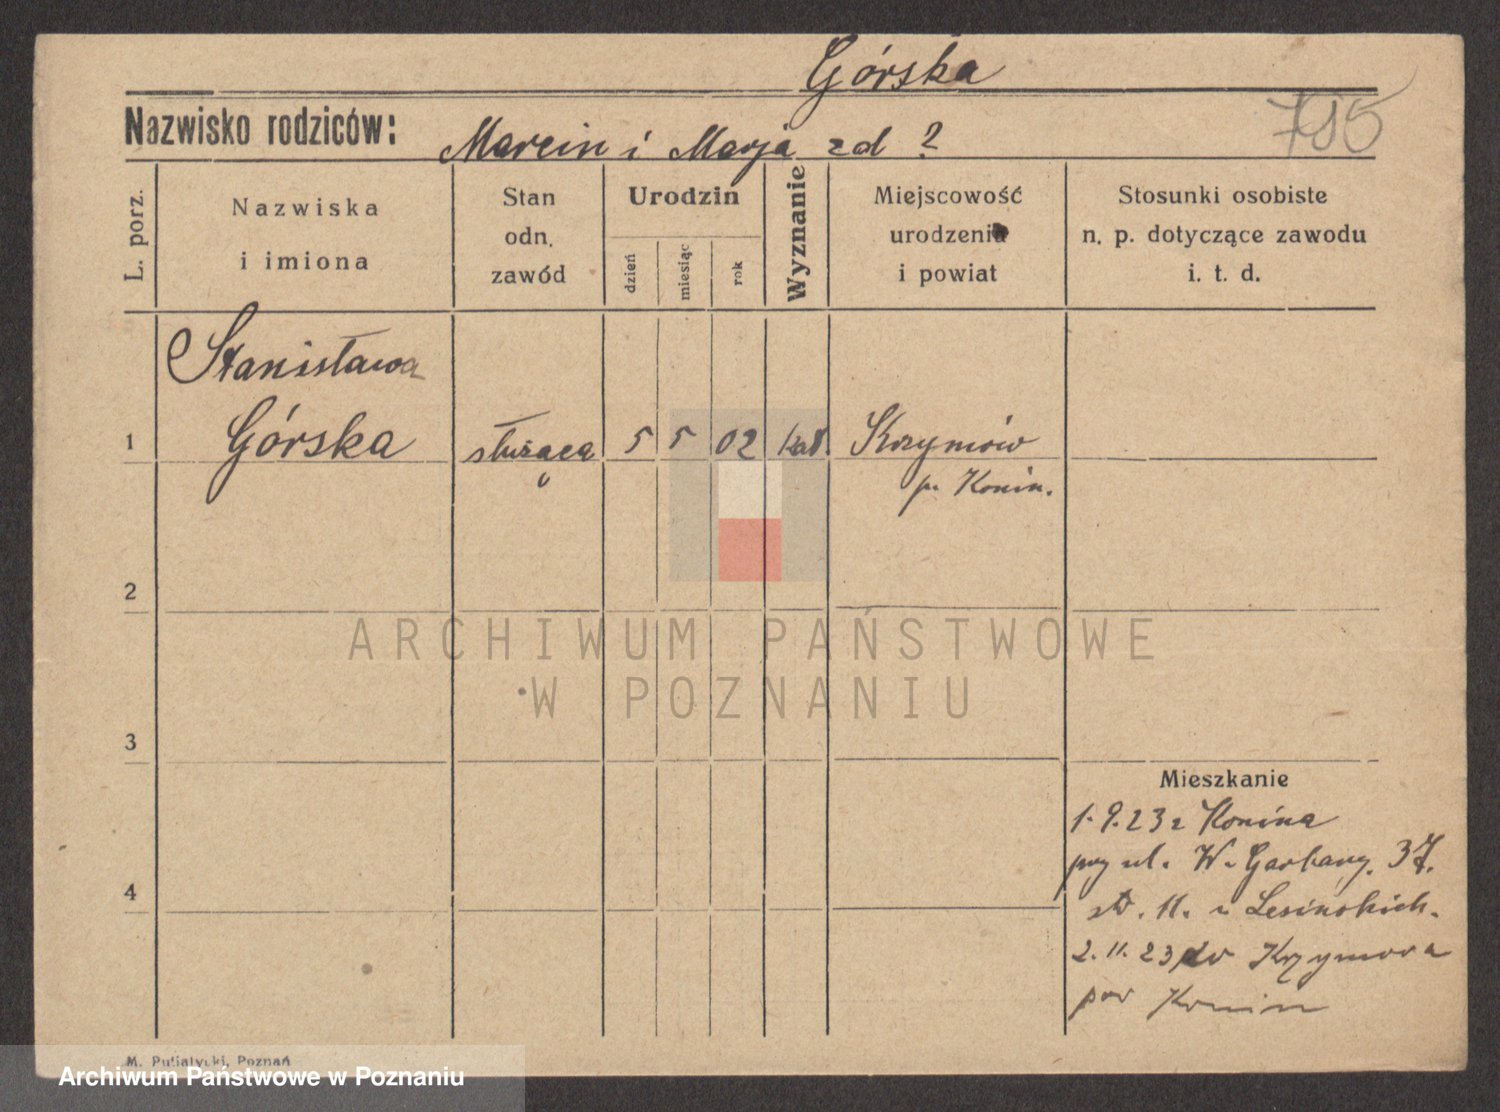 Górska
Nazwisko rodziców: Marcin i Marja zd ?
L. porz.
Nazwiska
i imiona
Stan
odn.
zawód
Urodzin
dzień
miesiąc
rok
Wyznanie
Miejscowość
urodzenia
i powiat
Stosunki osobiste
n. p. dotyczące zawodu
i. t. d.
Stanisława
1 Górska służąca 5 5 02 kat. Krzymów
p. Konin.
2
ARCHIWUM PAŃSTWOWE
W POZNANIU
3
Mieszkanie
1.9.23 z Konina
przy ul. W. Garbary. 37.
4
11. u Lesinskich.
2.11.23 do Krzymowa
pow Konin
M. Putiatycki, Poznań
Archiwum Państwowe w Poznaniu